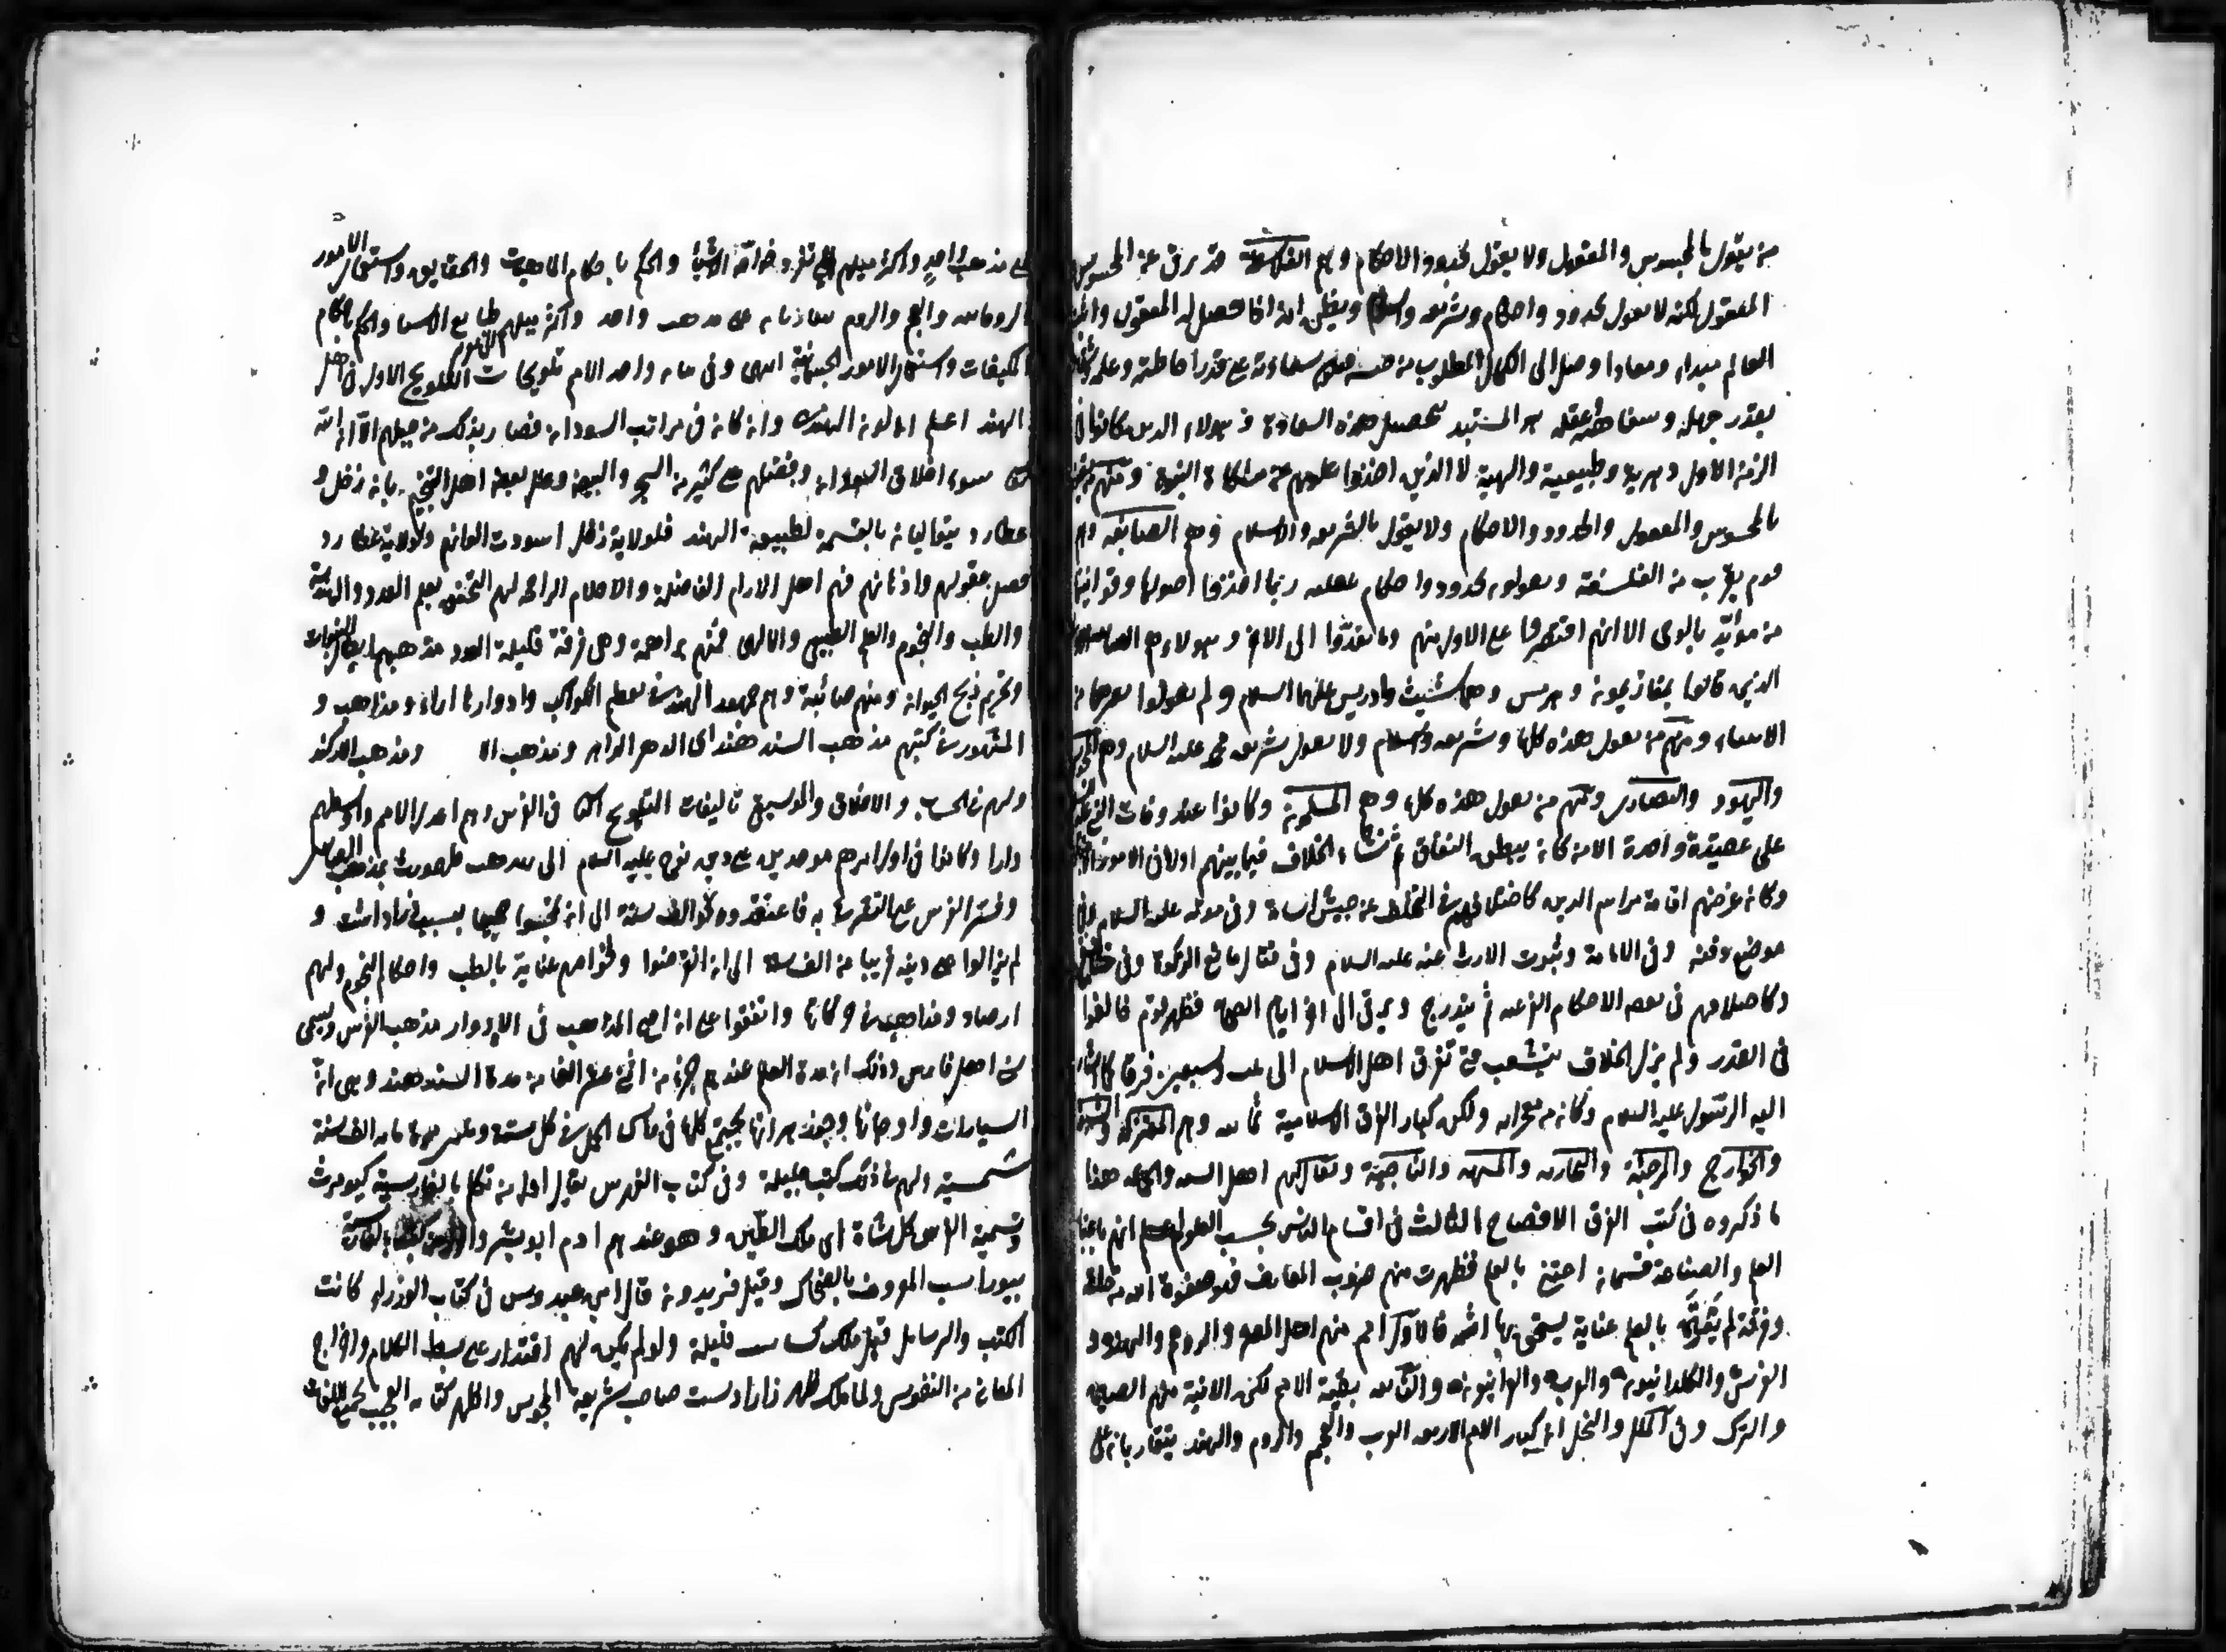 من يقول بالمحسوس والمعقول ولا يقول بحدود والاحكام وهم الفلاسفة قد ترقى عن المحسوس
المعقول لكنه لا يقول بحدود واحكام وشريعه واسلام ويظن انه اذا حصل له المعقول
العالم مبداء ومعادا وصل الى الكمال المطلوب من جنسه فيكون سعادته على قدر احاطته وعلمه
بقدر جهله وسفاهته وعقله هو المستبد بتحصيل هذه السعادة وهؤلاء الذين كانوا فى
الزمن الاول دهرية وطبيعية والهية لا الذين اخذوا علومهم عن مشكاة النبوة ومنهم من يقول
بالمحسوس والمعقول والحدود والاحكام ولا يقول بالشريعه والاسلام وهم الصابئه وهم
قوم بقرب من الفلسفة ويقولون بحدود واحكام عقليه ربما اخذوا اصولها وقوانينها
من مؤيد بالوحى الا انهم اقتصروا على الاول منهم وما تعدوا الى الاخر وهؤلاء هم الصابئه الاولى
الذين قالوا بعاذيمون وهرمس وهما شيث وادريس عليهما السلام ولم يقولوا بغيرهما من
الانبياء ومنهم من يقول بهذه كلها وشريعه واسلام ولا يقول بشريعه محمد عليه السلام وهم المجوس
واليهود والنصارى ومنهم من يقول بهذه كلها وهم المسلمون وكانوا عند وفات النبى عليه
على عقيدة واحدة الا من كان يبطن النفاق ثم نشاء الخلاف فيما بينهم اولا فى الامور
وكان غرضهم اقامة مراسم الدين كاختلافهم فى التخلف عن جيش اسامة وفى موته عليه السلام وفى
موضع دفنه وفى الامامة وثبوت الارث عنه عليه السلام وفى قتال مانع الزكوة وفى
وكاختلافهم فى بعض الاحكام الفرعيه ثم يتدرج ويرتقى الى اخر ايام الصحابه فظهر قوم خالفوا
فى القدر ولم يزل الخلاف يتشعب حتى تفرق اهل الاسلام الى ثلث وسبعين فرقة كما اشار
اليه الرسول عليه السلام وكان من معجزاته ولكن كبار الفرق الاسلامية ثمانيه وهم المعتزله والشيعة
والخوارج والمرجئة والنجاريه والجبريه والناجية ويقال لهم اهل السنه والجماعه هذا
ما ذكروه فى كتب الفرق الافصاح الثالث فى اقسام الناس بحسب العلوم اعلم انهم باعتبار
العلم والصناعة قسمان اعتنى بالعلم فظهرت منهم ضروب المعارف فهو صفوة الله من خلقه
وفرقة لم يعتن بالعلم عناية يستحق بها اسمه فالاولى امم منهم اهل المصر والروم والهنود و
الفرس والكلدانيون والعرب واليونانيون والثانيه بقية الامم لكن الانبه منهم الصين
والترك وفى الملل والنحل ان كبار الامم الاربعه العرب والعجم والروم والهند يتقاربان على
على مذهب واحد واكثر ميلهم الى تقرير خواص الاشيا والحكم باحكام الماهيات والحقايق واستعمال الامور
الروحانيه والعجم والروم يتقاربان على مذهب واحد واكثر ميلهم الى تقرير طبايع الاشيا والحكم باحكام
الكيفيات واستعمال الامور الجسمانية انتهى وفى بيان واحد الامم تلويحات التلويح الاول فى اهل
الهند اعلم ان لون الهند وان كان فى مراتب السودان فصار بذلك من جيلهم الا ان الله
سوء اخلاق السودان وفضلهم على كثير من السمر والبيض وعلل بعض اهل التنجيم بان زحل و
عطارد يتوليان بالقسمة لطبيعة الهند فلولاية زحل اسودت الوانهم ولولاية عطارد
خلصت عقولهم واذهانهم فهم اهل الاراء الفاضلة والاحلام الراجحه لهم التحقق بعلم العدد والهندسة
والطب والنجوم والعلم الطبيعى والالهى فمنهم براهمة وهى فرقة قليلة العدد مذهبهم ابطال النبوات
وتحريم ذبح الحيوان ومنهم صابئة وهم جمهور الهند تعظيم الكواكب وادوارها اراء ومذاهب و
المشهور فى كتبهم مذهب السند هند اى الدهر الداهر ومذهب الا ومذهب الاركند
ولهم فى الحساب والاخلاق والموسيقى تاليفات التلويح الثانى فى الفرس وهم اعدل الامم واوسطهم
دارا وكانوا فى اول امرهم موحدين على دين نوح عليه السلام الى مذهب طهمورث بمذهب الصابئين
وقسر الفرس على التشرع به فاعتقدوه نحو الف سنة الى ان تمجسوا جميعا بسبب زرادشت و
لم يزالوا على دينه قريبا من الف سنه الى ان انقرضوا ولخواصهم عناية بالطب واحكام النجوم ولهم
ارصاد ومذاهب فى حركاتها واتفقوا على ان اصح المذاهب فى الادوار مذهب الفرس ويسمى
سنى اهل فارس وذلك ان مدة العلم عندهم جزء من اثنى عشر الفا من مدة السندهند وهى ان
السيارات واوجاتها وجوزهراتها يجتمع كلها فى راس الحمل فى كل ستة وثلثين مرة مائه الف سنة
شمسية ولهم فى ذلك كتب جليلة وفى كتاب الفهرس يقال اول من تكلم بالفارسية كيومرث
وتسميه الفرس كل شاه اى ملك الطين وهو عندهم ادم ابو البشر واول من كتب بالفارسية
بيوراسب المعروف بالضحاك وقيل فريدون قال ابن عبدوس فى كتاب الوزراء كانت
الكتب والرسايل قبل ملك كشتاسب قليلة ولم يكن لهم اقتدار على بسط الكلام واخراج
المعانى من النفوس ولما ملك ظهر زرادشت صاحب شريعة المجوس واظهر كتابه العجيب بجميع اللغات